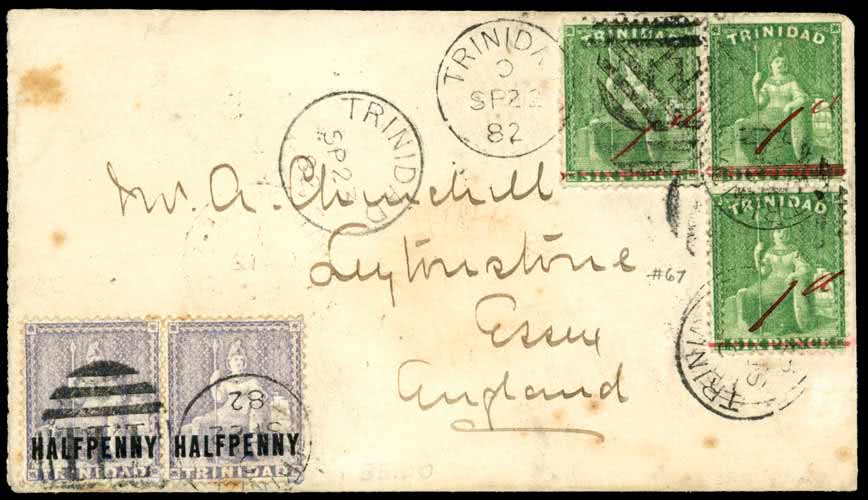 TRINIDAD
TRINIDAD
TRINIDAD
SP 22
82
1d
1d
TRINIDAD
SP 2
TRINIDAD
1d
TRINI
Mr. A. Churchill
Leytonstone
#67
Essex
England
82
HALFPENNY
HALFPENNY
TRINIDAD
TRINIDAD